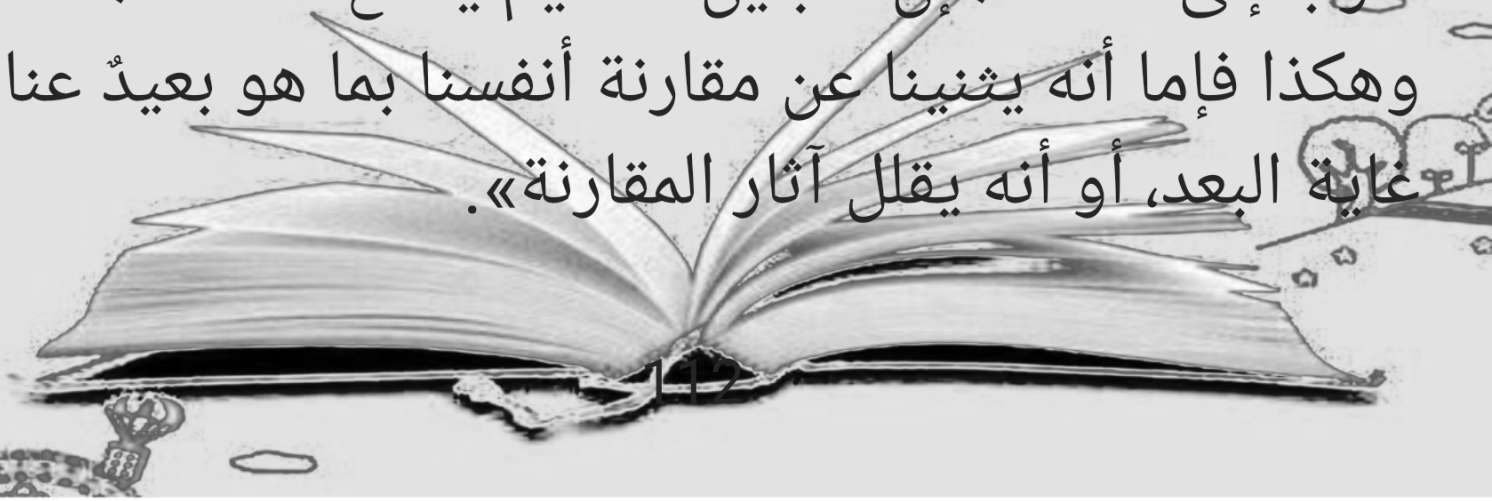 وهكذا فإما أنه يثنينا عن مقارنة أنفسنا بما هو بعيدٌ عنا
غاية البعد، أو أنه يقلل آثار المقارنة».
112